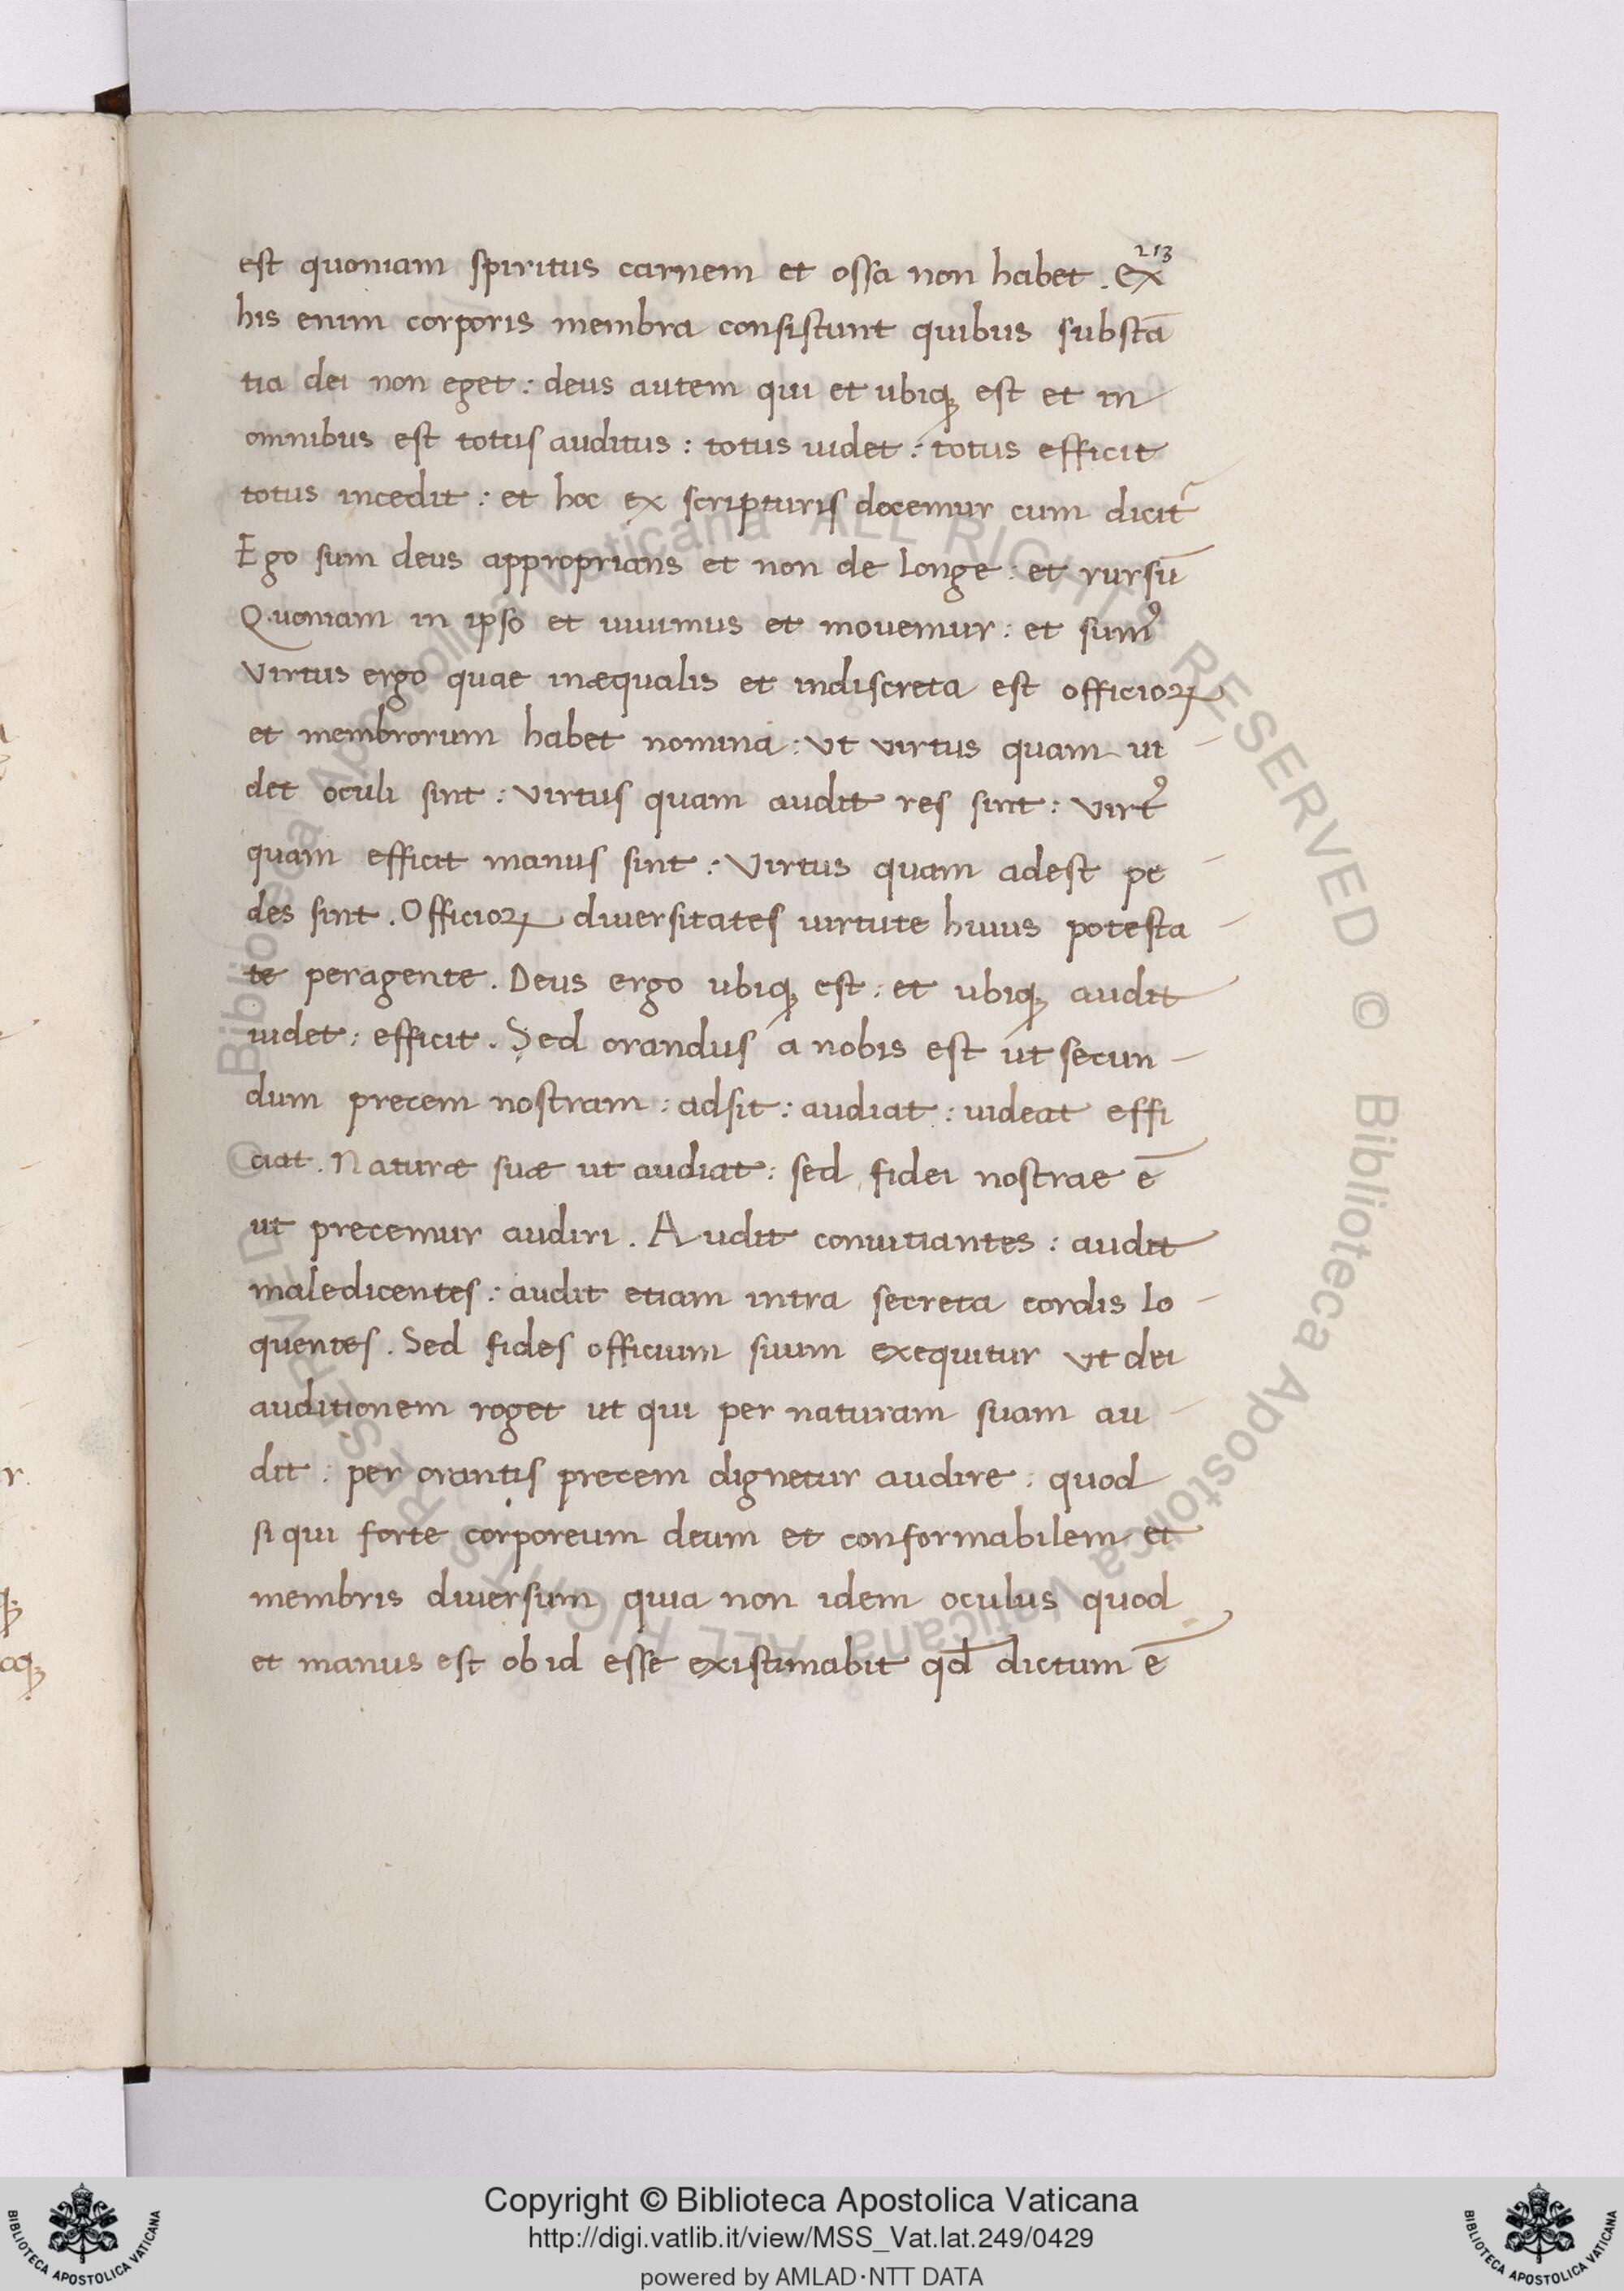 213
est quoniam spiritus carnem et ossa non habet. Ex
his enim corporis membra consistunt quibus substā
tia dei non eget: deus autem qui et ubiqȝ est et in
omnibus est totus auditus: totus uidet: totus efficit
totus incedit: et hoc ex scripturis docemur cum dicit᷑
Ego sum deus approprians et non de longe: et rursū
Quoniam in ipso et uiuimus et mouemur: et sumꝰ
Virtus ergo quae inæqualis et indiscreta est officioꝝ
et membrorum habet nomina: ut virtus quam ui
det oculi sint: virtus quam audit res sint: virtꝰ
quam efficit manus sint: Virtus quam adest pe
des sint. Officioꝝ diuersitates uirtute huius potesta
te peragente. Deus ergo ubiqȝ est: et ubiqȝ audit
uidet: efficit. Sed orandus a nobis est ut secun
dum precem nostram: adsit: audiat: uideat effi
ciat. Naturæ suæ ut audiat: sed fidei nostrae ē
ut precemur audiri. Audit conuitiantes: audit
maledicentes: audit etiam intra secreta cordis lo
quentes. Sed fides officium suum exequitur ut dei
auditionem roget ut qui per naturam suam au
dit: per orantis precem dignetur audire: quod
si qui forte corporeum deum et conformabilem et
membris diuersum quia non idem oculus quod
et manus est ob id esse existimabit qd̄ dictum ē
© Biblioteca Apostolica Vaticana ALL RIGHTS RESERVED © Biblioteca Apostolica Vaticana ALL RIGHTS RESERVED
Copyright © Biblioteca Apostolica Vaticana
http://digi.vatlib.it/view/MSS_Vat.lat.249/0429
powered by AMLAD·NTT DATA
BIBLIOTECA APOSTOLICA VATICANA
BIBLIOTECA APOSTOLICA VATICANA